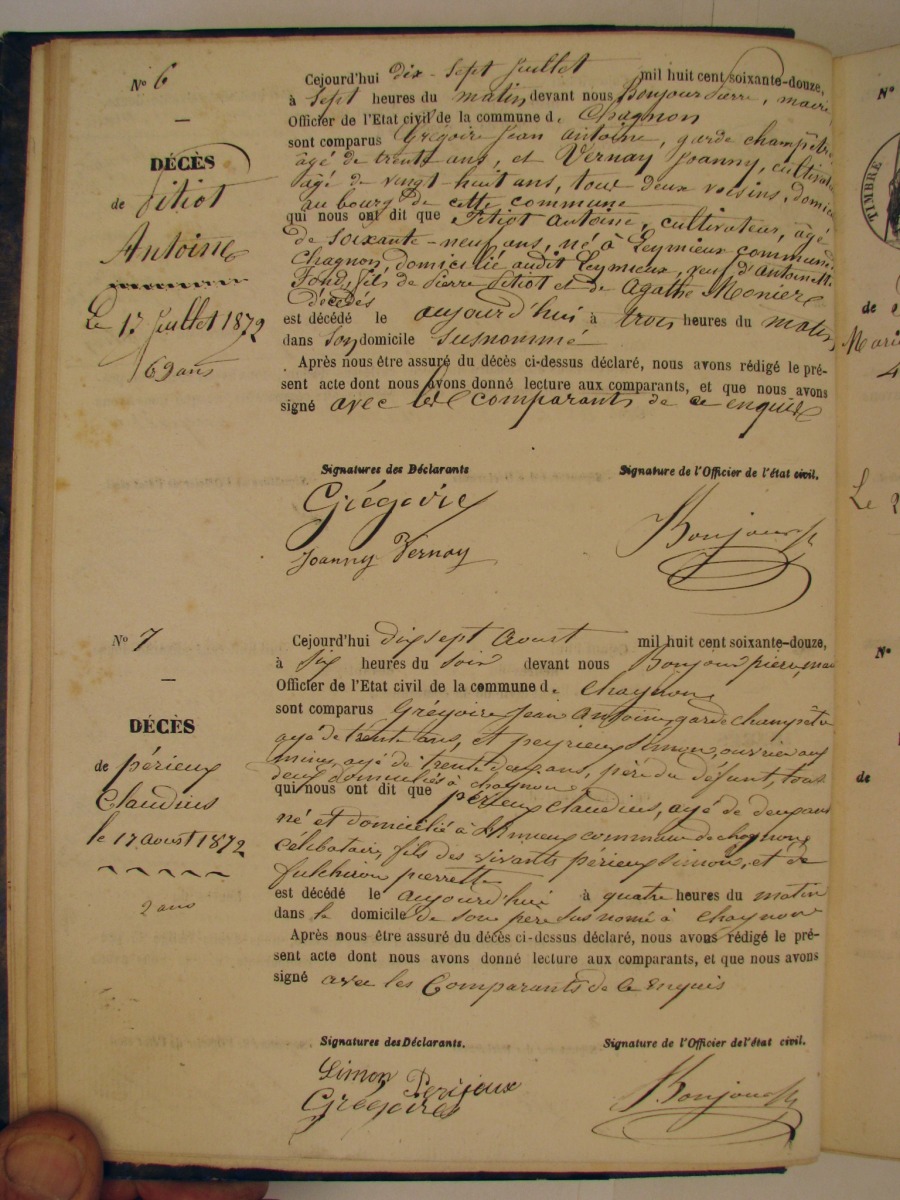 N° 6
DÉCÈS
de Pitiot
Antoine
Le 17 Juillet 1872
69 ans
Cejourd'hui Dix-Sept Juillet mil huit cent soixante-douze,
à Sept heures du matin devant nous Bonjour Pierre, maire
Officier de l'Etat civil de la commune d. Chagnon
sont comparus Grégoire Jean Antoine, garde champêtre
âgé de trente ans, et Vernay Joanny, cultivat
âgé de vingt-huit ans, tous deux voisins, domici
au bourg de cette commune
qui nous ont dit que Pitiot Antoine, cultivateur, âgé
de Soixante-neuf ans, né à Leymieux commune
Chagnon, domicilié audit Leymieux, veuf d'Antoinette
Fond, fils de Pierre Pitiot et de Agathe Moniere
décédés
est décédé le aujourd'hui à trois heures du matin
dans son domicile susnommé
Après nous être assuré du décès ci-dessus déclaré, nous avons rédigé le pré-
sent acte dont nous avons donné lecture aux comparants, et que nous avons
signé avec les comparants de ce enquis
Signatures des Déclarants
Signature de l'Officier de l'état civil.
Grégoire
Bonjour
Joanny Vernay
N° 7
DÉCÈS
de périeux
Claudius
le 17 aoust 1872
2 ans
Cejourd'hui dix sept Aoust mil huit cent soixante-douze,
à six heures du soir devant nous Bonjour pierre, mai
Officier de l'Etat civil de la commune d. Chagnon
sont comparus Grégoire Jean Antoine garde champêtre
agé de trente ans, et peyrieux Simon, ouvrier aux
mines, agé de trente deux ans, père du défunt, tous
deux domiciliés à chagnon
qui nous ont dit que périeux Claudius, agé de deux ans
né et domicilié à commune de chagnon,
célibataire, fils des vivants périeux Simon, et de
fulchiron pierrette
est décédé le aujourd'hui à quatre heures du matin
dans le domicile de son père sus nomé à chagnon
Après nous être assuré du décès ci-dessus déclaré, nous avons rédigé le pré-
sent acte dont nous avons donné lecture aux comparants, et que nous avons
signé avec les Comparants de ce enquis
Signatures des Déclarants.
Signature de l'Officier de l'état civil.
Simon Perijeux
Grégoire
Bonjour
N°
TIMBRE
de
Mari
Le 2
N°
de